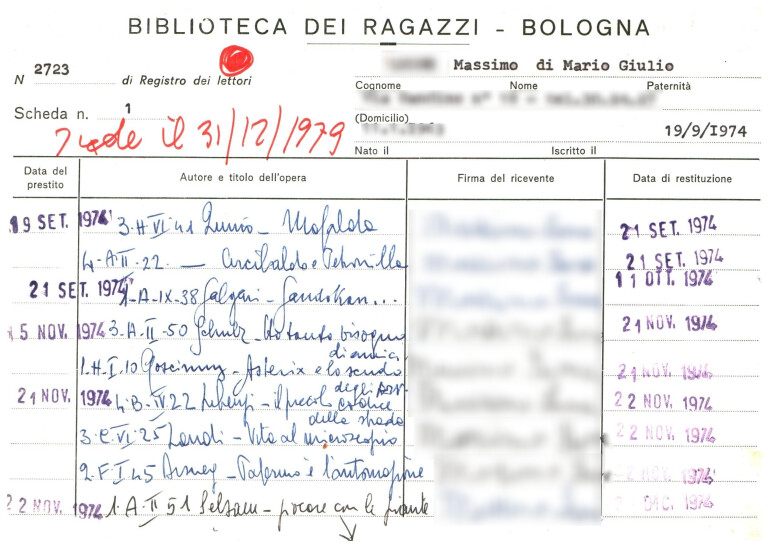 BIBLIOTECA DEI RAGAZZI - BOLOGNA
N 2723 di Registro dei lettori
Massimo di Mario Giulio
Cognome Nome Paternità
Scheda n. 1
(Domicilio)
scade il 31/12/1979
19/9/I974
Nato il Iscritto il
Data del prestito Autore e titolo dell'opera Firma del ricevente Data di restituzione
19 SET. 1974 3-H-VI-41 Quino - Mafalda 21 SET. 1974
4-A-II-22 — Arcibaldo e Petronilla 21 SET. 1974
21 SET. 1974 1-A-IX-38 Salgari - Sandokan... 11 OTT. 1974
5 NOV. 1974 3-A-II-50 Schulz - Ho tanto bisogno 21 NOV. 1974
di amici
1.H-I.10 Goscinny - Asterix e lo scudo 21 NOV. 1974
degli
21 NOV. 1974 4-B-IV 22 - il piccolo 22 NOV. 1974
della strada
3-E-VI-25 Landi - Vita al microscopio 22 NOV. 1974
2-F-I 45 - Palermo è l'automazione 1974
22 NOV. 1974 1.A-II 51 Selsam - giocare con le piante DIC. 1974